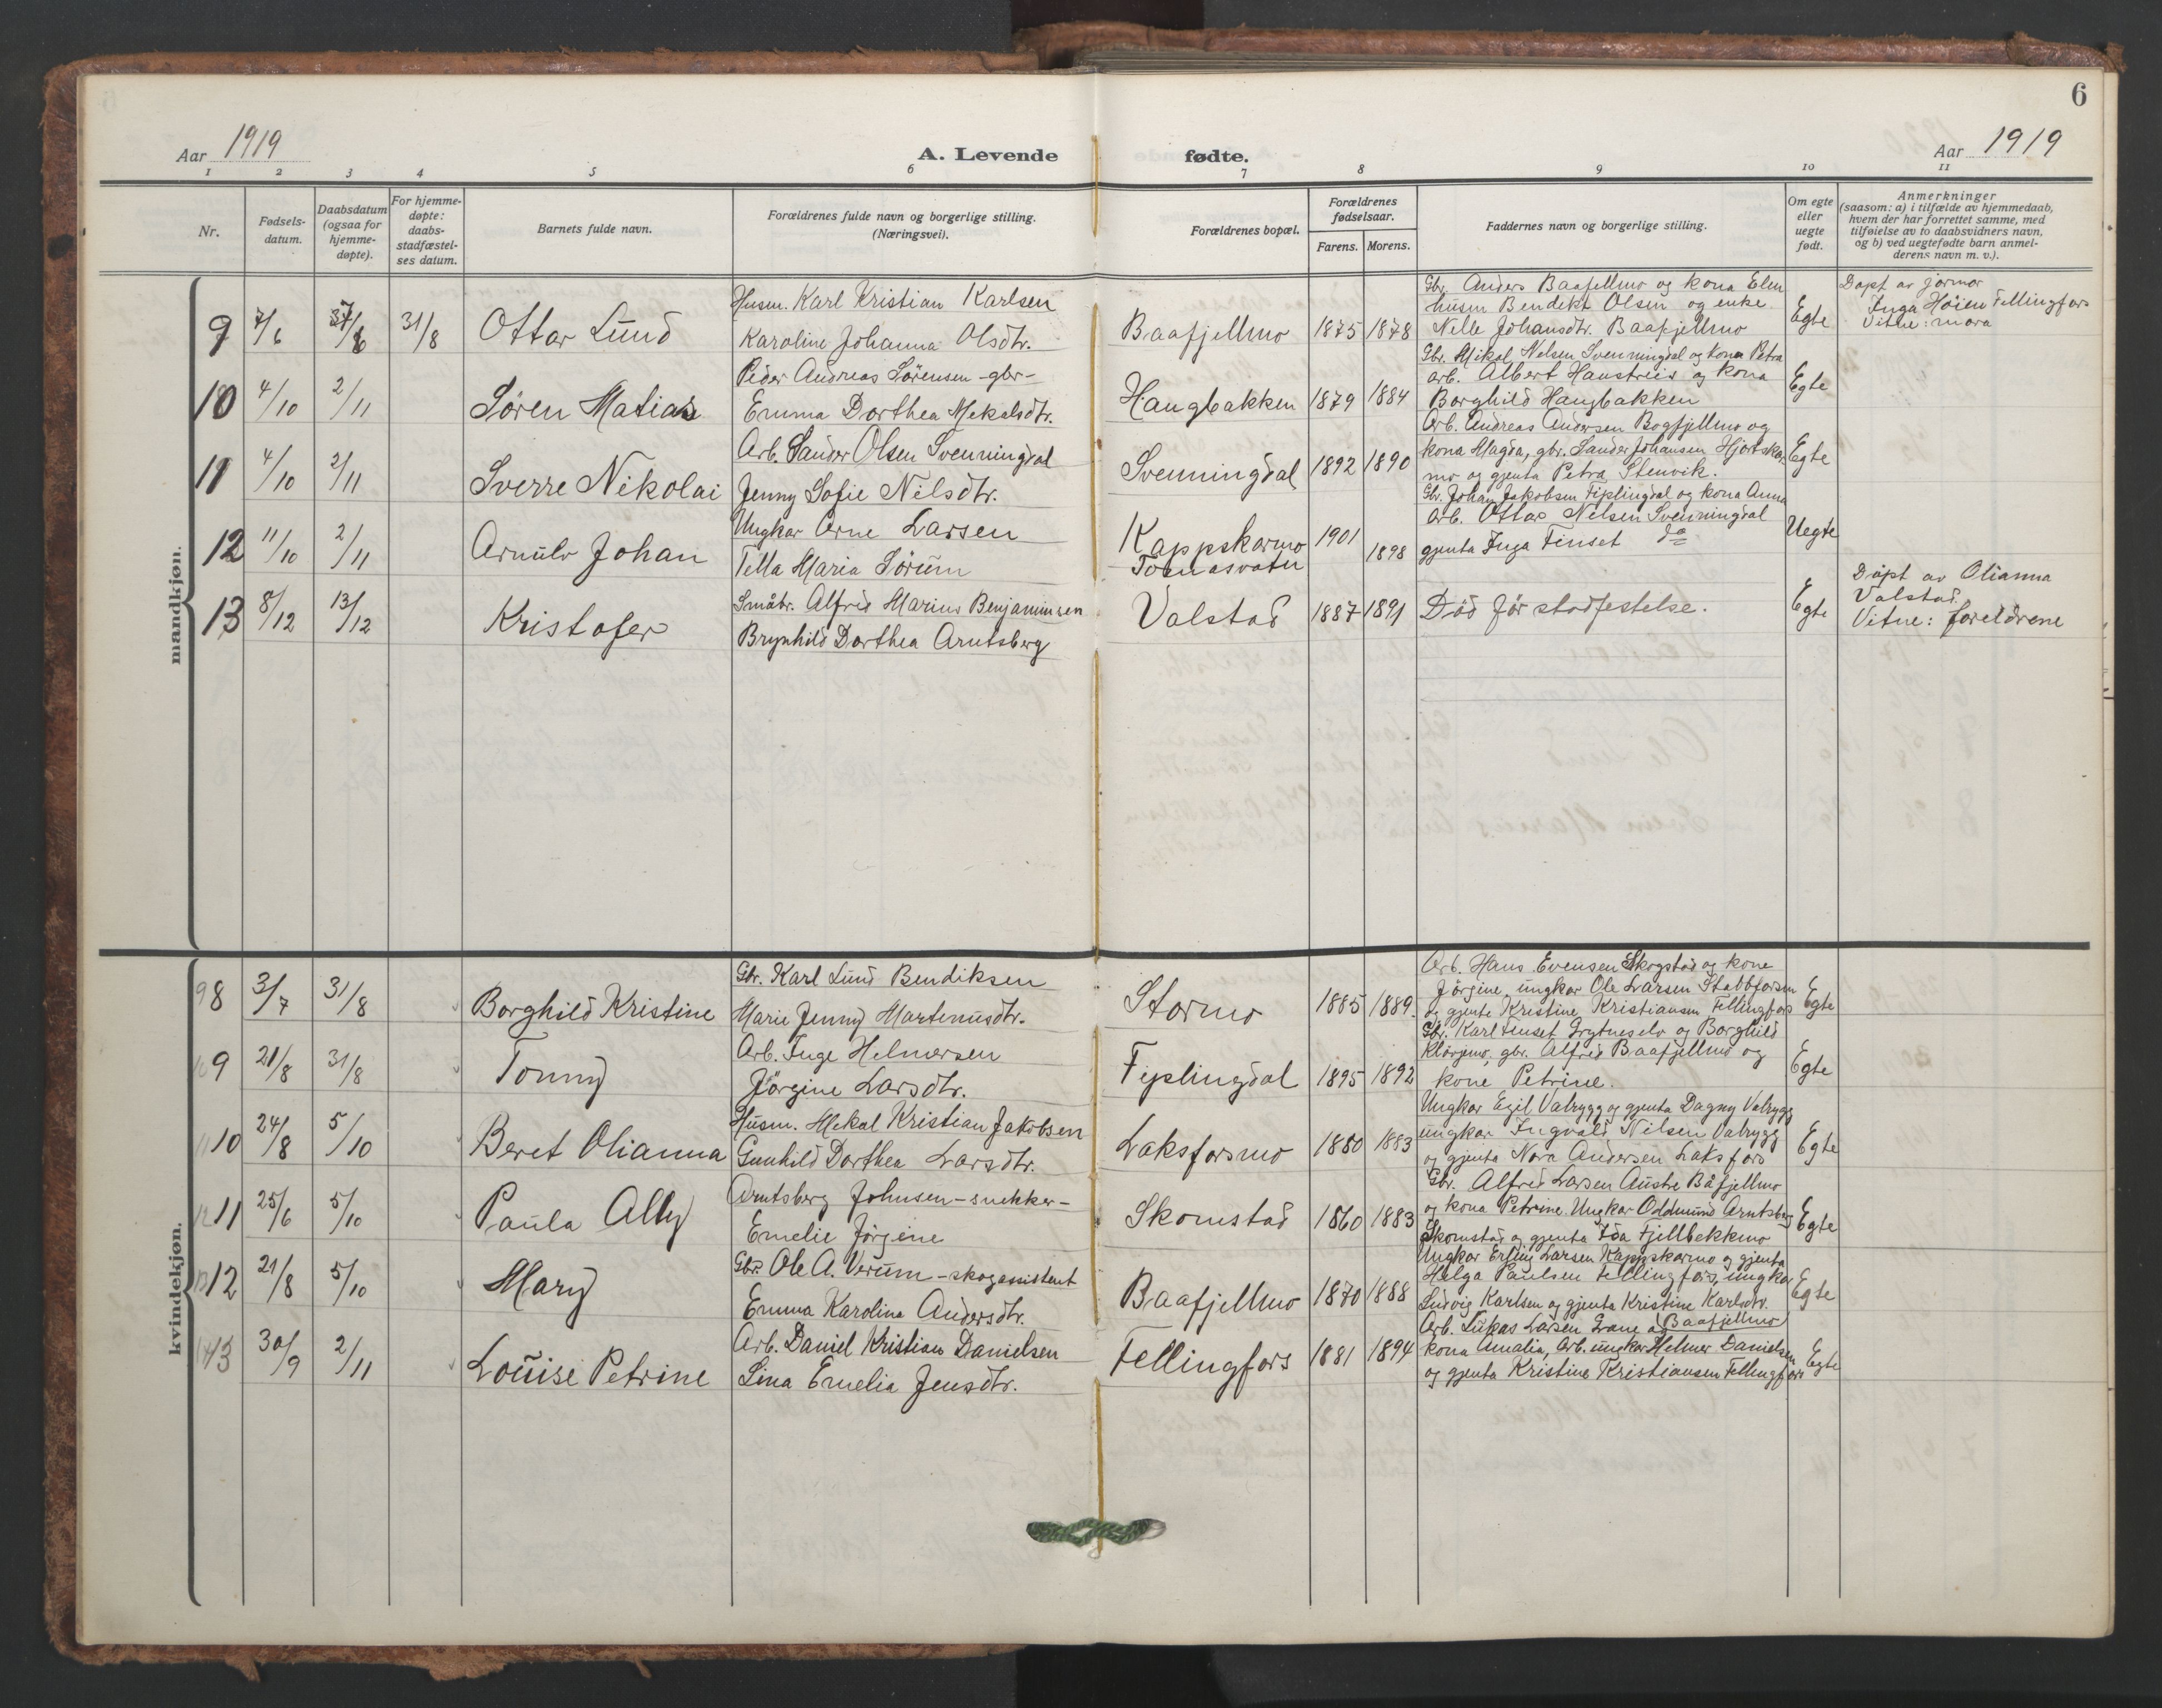 6
Aar 1919
A. Levende fødte.
Aar 1919
1 2 3 4 5 6 7 8 9 10 11
Nr.
Fødsels-
datum.
Daabsdatum
(ogsaa for
hjemme-
døpte).
For hjemme-
døpte:
daabs-
stadfæstel-
ses datum.
Barnets fulde navn.
Forældrenes fulde navn og borgerlige stilling.
(Næringsvei).
Forældrenes bopæl.
Forældrenes
fødselsaar.
Farens. Morens.
Faddernes navn og borgerlige stilling.
Om egte
eller
uegte
født.
Anmerkninger
(saasom: a) i tilfælde av hjemmedaab,
hvem der har forrettet samme, med
tilføielse av to daabsvidners navn,
og b) ved uegtefødte barn anmel-
derens navn m. v.).
mandkjøn.
9 7/6 31/8 Ottar Lund
Husm. Karl Kristian Karlsen
Karoline Johanna Olsdtr.
Baafjellmo 1875 1878
Gbr. Anders Baafjellmo og kona Elen
husm Bendekt Olsen og enke
Nelle Johansdtr. Baafjellmo
Egte
Døpt av jormor
Inga Høien Fellingfors
Vitne: mora
10 4/10 2/11 Søren Matias
Peder Andreas Sørensen - gbr -
Emma Dorthea Mekalsdtr.
Haugbakken 1879 1884
Gbr. Mikal Nelsen Svenningdal og kona Petra
arb. Albert Haustreis og kona
Borghild Haugbakken
Egte
11 4/10 2/11 Sverre Nikolai
Arb. Sander Olsen Svenningdal
Jenny Sofie Nilsdtr.
Svenningdal 1892 1890
Arb. Andreas Andersen Bogfjellmo og
kona Magda, gbr. Sander Johansen Hjortskar-
mo og gjenta Petra Stenvik.
Egte
12 11/10 2/11 Arnulv Johan
Ungkar Arne Larsen
Tella Maria Sørum
Kappskarmo 1901
1898
Gbr. Johan Jakobsen Fiplingdal og kona Anna
arb. Ottar Nelsen Svenningdal
gjenta Inga Finset do
Uegte
13 8/12 13/12 Kristofer
Småbr. Alfred Marius Benjaminsen
Brynhild Dorthea Arntsberg
Valstad 1887 1891 Död før stadfestelse.
Egte
Døpt av Olianna
Valstad.
Vitne: foreldrene
kvindekjøn.
8 3/7 31/8 Borghild Kristine
Gbr. Karl Lund Bendiksen
Marie Jenny Martenusdtr.
Stormo 1885 1889
Arb. Hans Evensen Skogstad og kone
Jörgine, ungkar Ole Larsen Stabbforsen
og gjenta Kristine Kristiansen Fellingfors
Egte
9 21/8 31/8 Tonny
Arb. Inge Helmersen
Jörgine Larsdtr.
Fiplingdal 1895 1892
Gbr. Karl Finset Grytneselv og Borghild
gbr. Alfred Baafjellmo og
kone Petrine.
Egte
10 24/8 5/10 Beret Olianna
Husm. Mekal Kristian Jakobsen
Gunhild Dorthea Larsdtr.
Laksforsmo 1880 1883
Ungkar Egil Valrygg og gjenta Dagny Valrygg
ungkar Ingvald Nilsen Valrygg
og gjenta Nora Andersen Laksfors
Egte
11 25/6 5/10 Paula Ally
Arntsberg Johnsen - snekker -
Emelie Jörgine
Skomstad 1860 1883
Gbr. Alfred Larsen Austre Båfjellmo
og kona Petrine. Ungkar Oddmund Arntsberg
Skomstad og gjenta Ida Fjellbekkmo
Egte
12 21/8 5/10 Mary
Gbr. Ole A. Verum - skogassistent
Emma Karolina Andersdtr.
Baafjellmo 1870 1888
Ungkar Erling Larsen Kappskarmo og gjenta
Helga Paulsen Fellingfors, ungkar
Ludvig Karlsen og gjenta Kristine Karlsdtr.
Baafjellmo
Egte
13 30/9 2/11 Louise Petrine
Arb. Daniel Kristian Danielsen
Lina Emelia Jensdtr.
Fellingfors 1881 1894
Arb. Lukas Larsen Grane og
kona Amalia, Arb. ungkar Helmer Danielsen
og gjenta Kristine Kristiansen Fellingfors
Egte